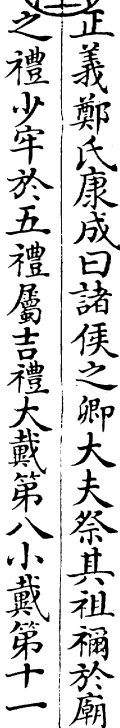 正義鄭氏康成曰諸侯之卿大夫祭其祖禰於廟
之禮少牢於五禮屬吉禮大戴第八小戴第十一